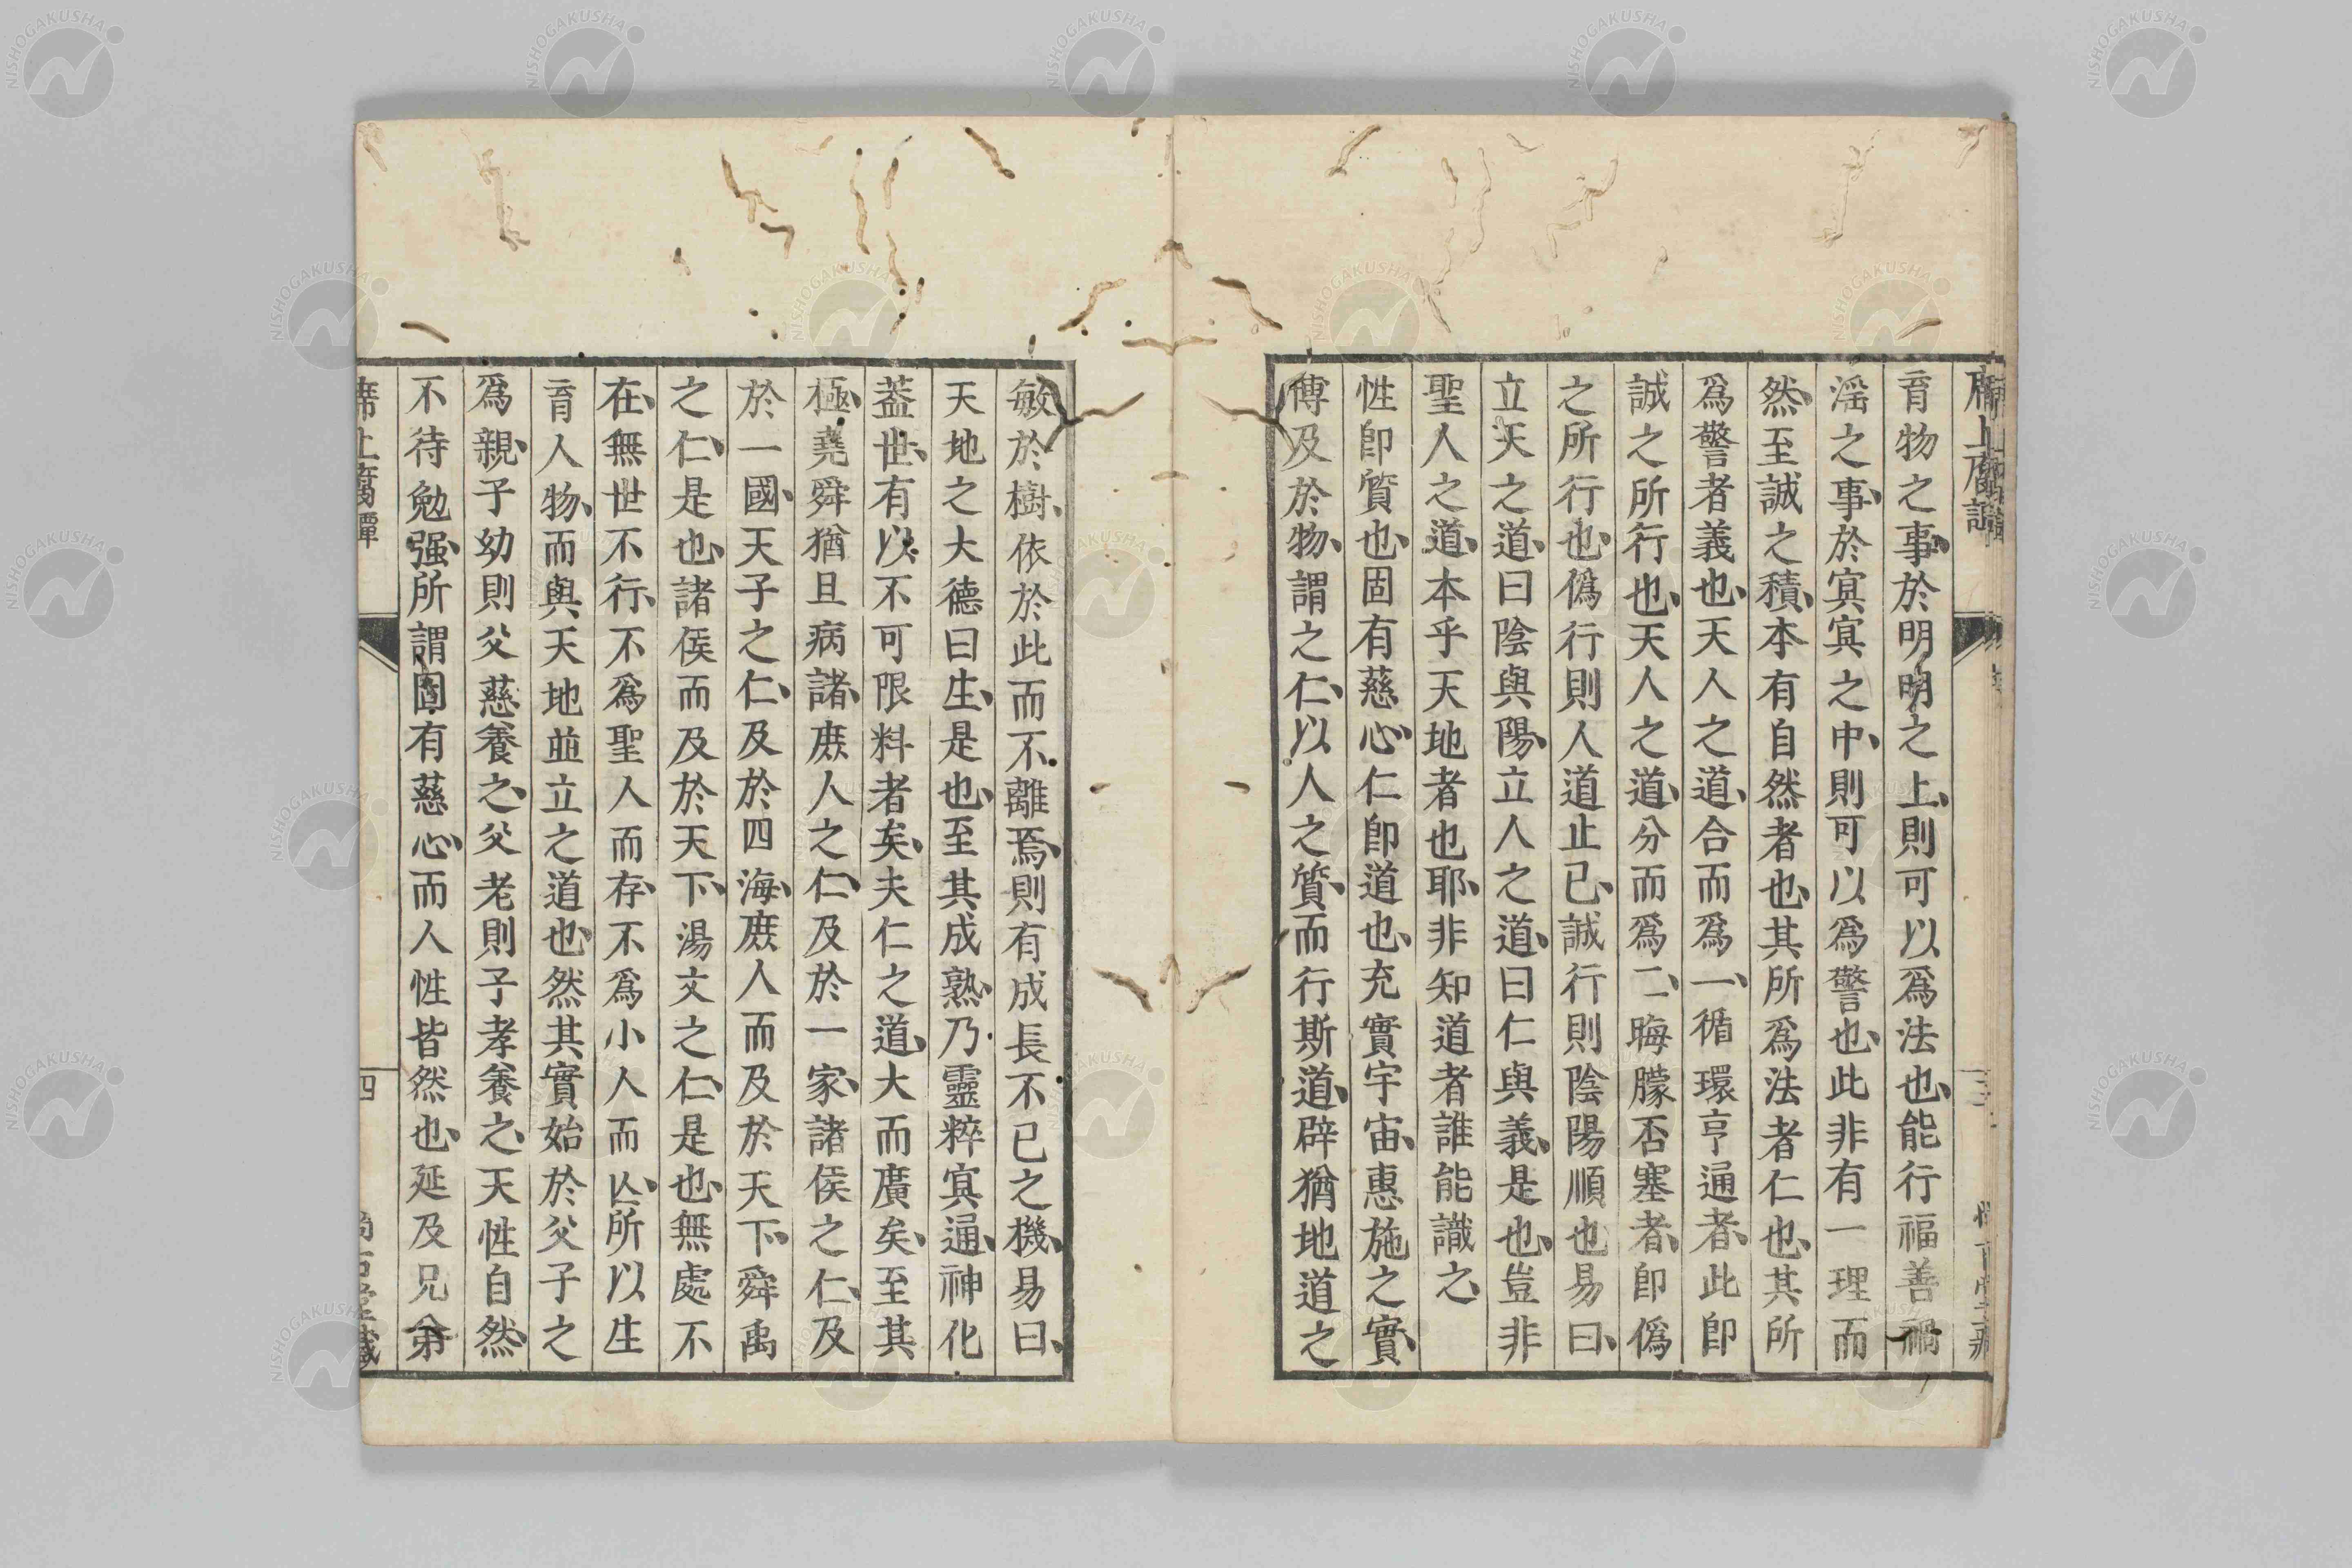 育物之事、於明明之上、則可以爲法也、能行福善禍
淫之事、於冥冥之中、則可以爲警也、此非有一理而
然、至誠之積、本有自然者也、其所爲法者仁也、其所
爲警者義也、天人之道、合而爲一、循環亨通者、此卽
誠之所行也、天人之道、分而爲二、晦朦否塞者、卽僞
之所行也、僞行則人道止已、誠行則陰陽順也易曰、
立天之道、曰陰與陽、立人之道、曰仁與義、是也、豈非
聖人之道、本乎天地者也耶、非知道者誰能識之、
性卽質也、固有慈心、仁卽道也、充實宇宙、惠施之實、
傳及於物、謂之仁、以人之質、而行斯道、辟猶地道之
敏於樹、依於此而不離焉、則有成長不已之機、易曰、
天地之大德曰生、是也、至其成熟、乃靈粹冥通、神化
蓋世、有以不可限料者矣、夫仁之道、大而廣矣、至其
極、堯舜猶且病諸、庶人之仁、及於一家、諸侯之仁、及
於一國、天子之仁、及於四海、庶人而及於天下、舜禹
之仁、是也、諸侯而及於天下、湯文之仁、是也、無處不
在、無世不行、不爲聖人而存、不爲小人而亾、所以生
育人物、而與天地並立之道也、然其實始於父子之
爲親、子幼則父慈養之、父老則子孝養之、天性自然、
不待勉强、所謂固有慈心、而人性皆然也、延及兄弟
席上腐譚
四
NISHOGAKUSHA